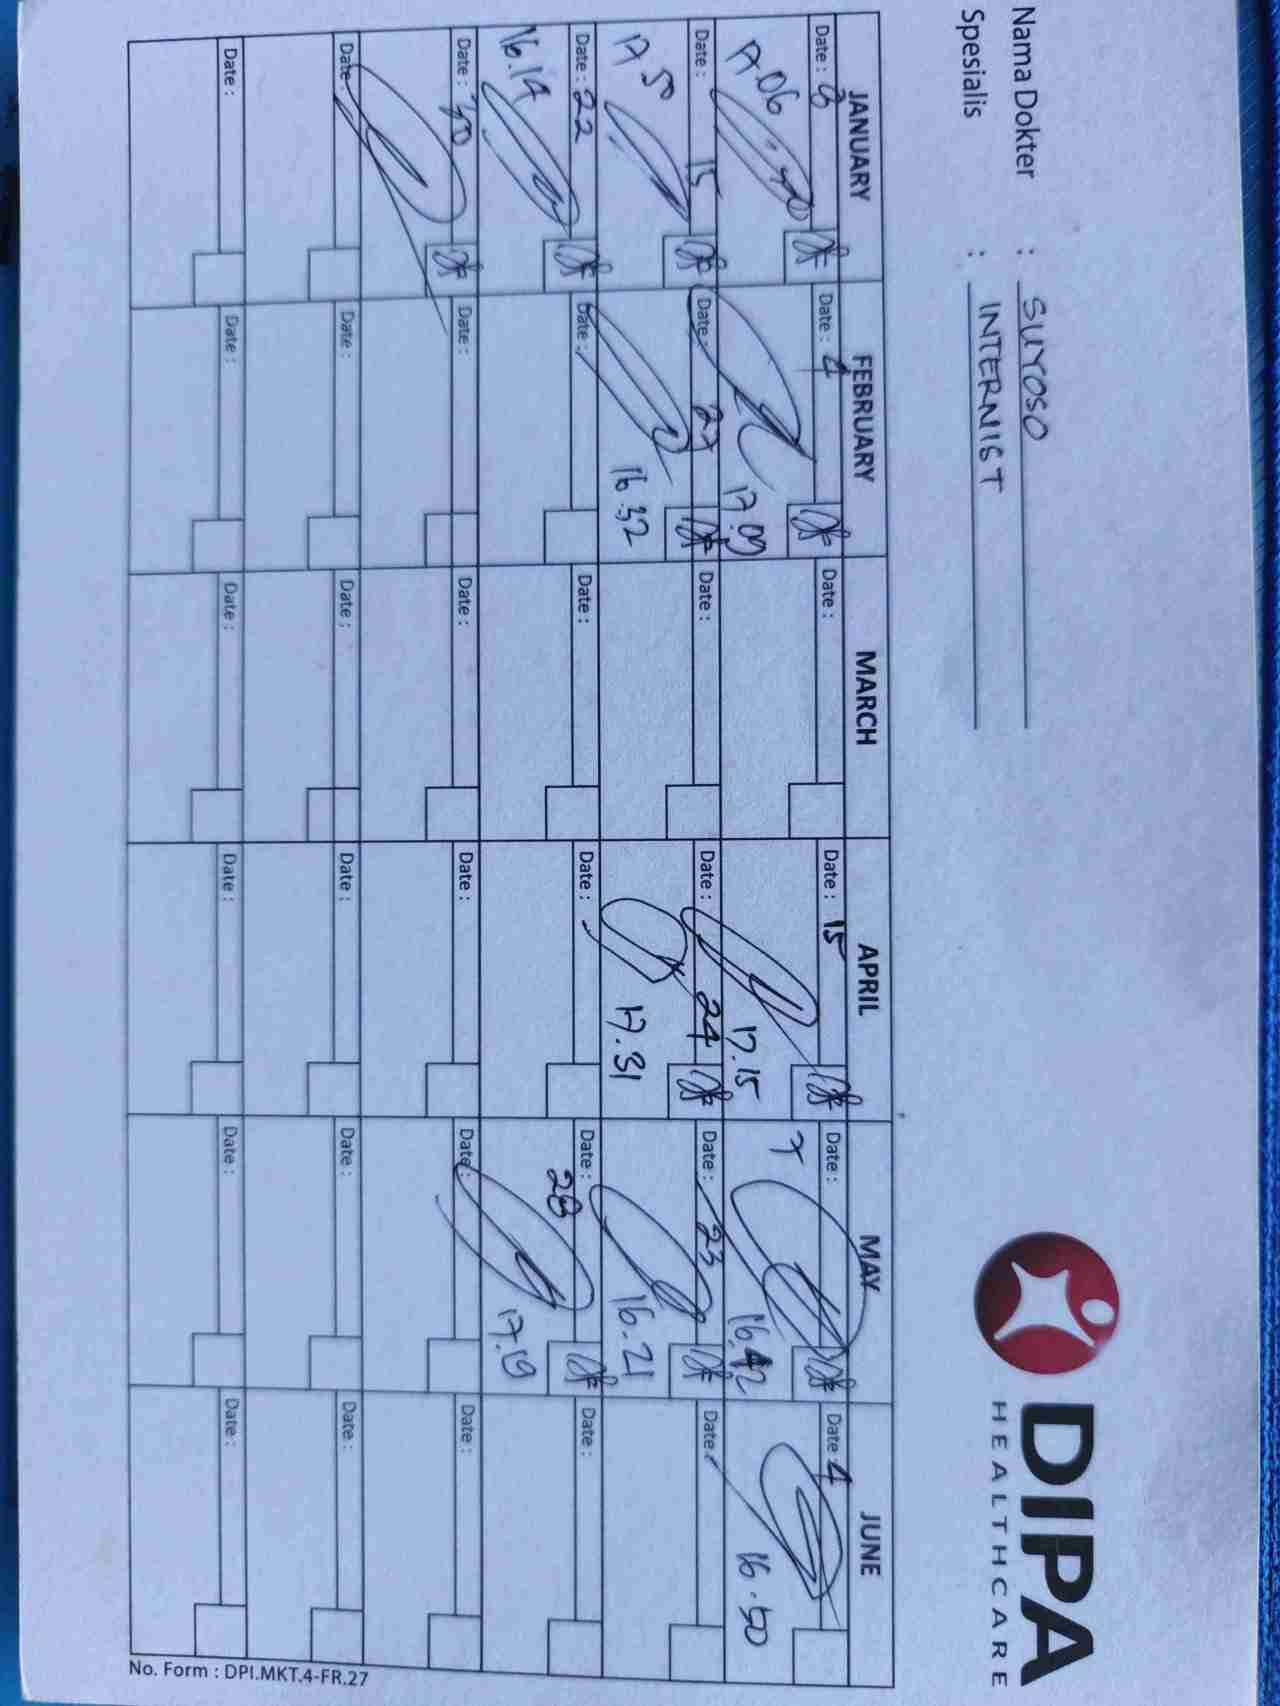 Nama Dokter : SUYOSO
Spesialis : INTERNIST
DIPA
HEALTHCARE
JANUARY FEBRUARY MARCH APRIL MAY JUNE
Date : 8 Date : 4 Date : Date : 15 Date : 7 Date : 4
17.06 17.09 17.15 16.42 16.50
Date : 15 Date : 27 Date : Date : 24 Date : 23 Date :
17.50 16.32 17.31 16.21
Date : 22 Date : Date : Date : Date : 28 Date :
16.14 17.19
Date : 30 Date : Date : Date : Date : Date :
Date : Date : Date : Date : Date : Date :
Date : Date : Date : Date : Date : Date :
No. Form : DPI.MKT.4-FR.27